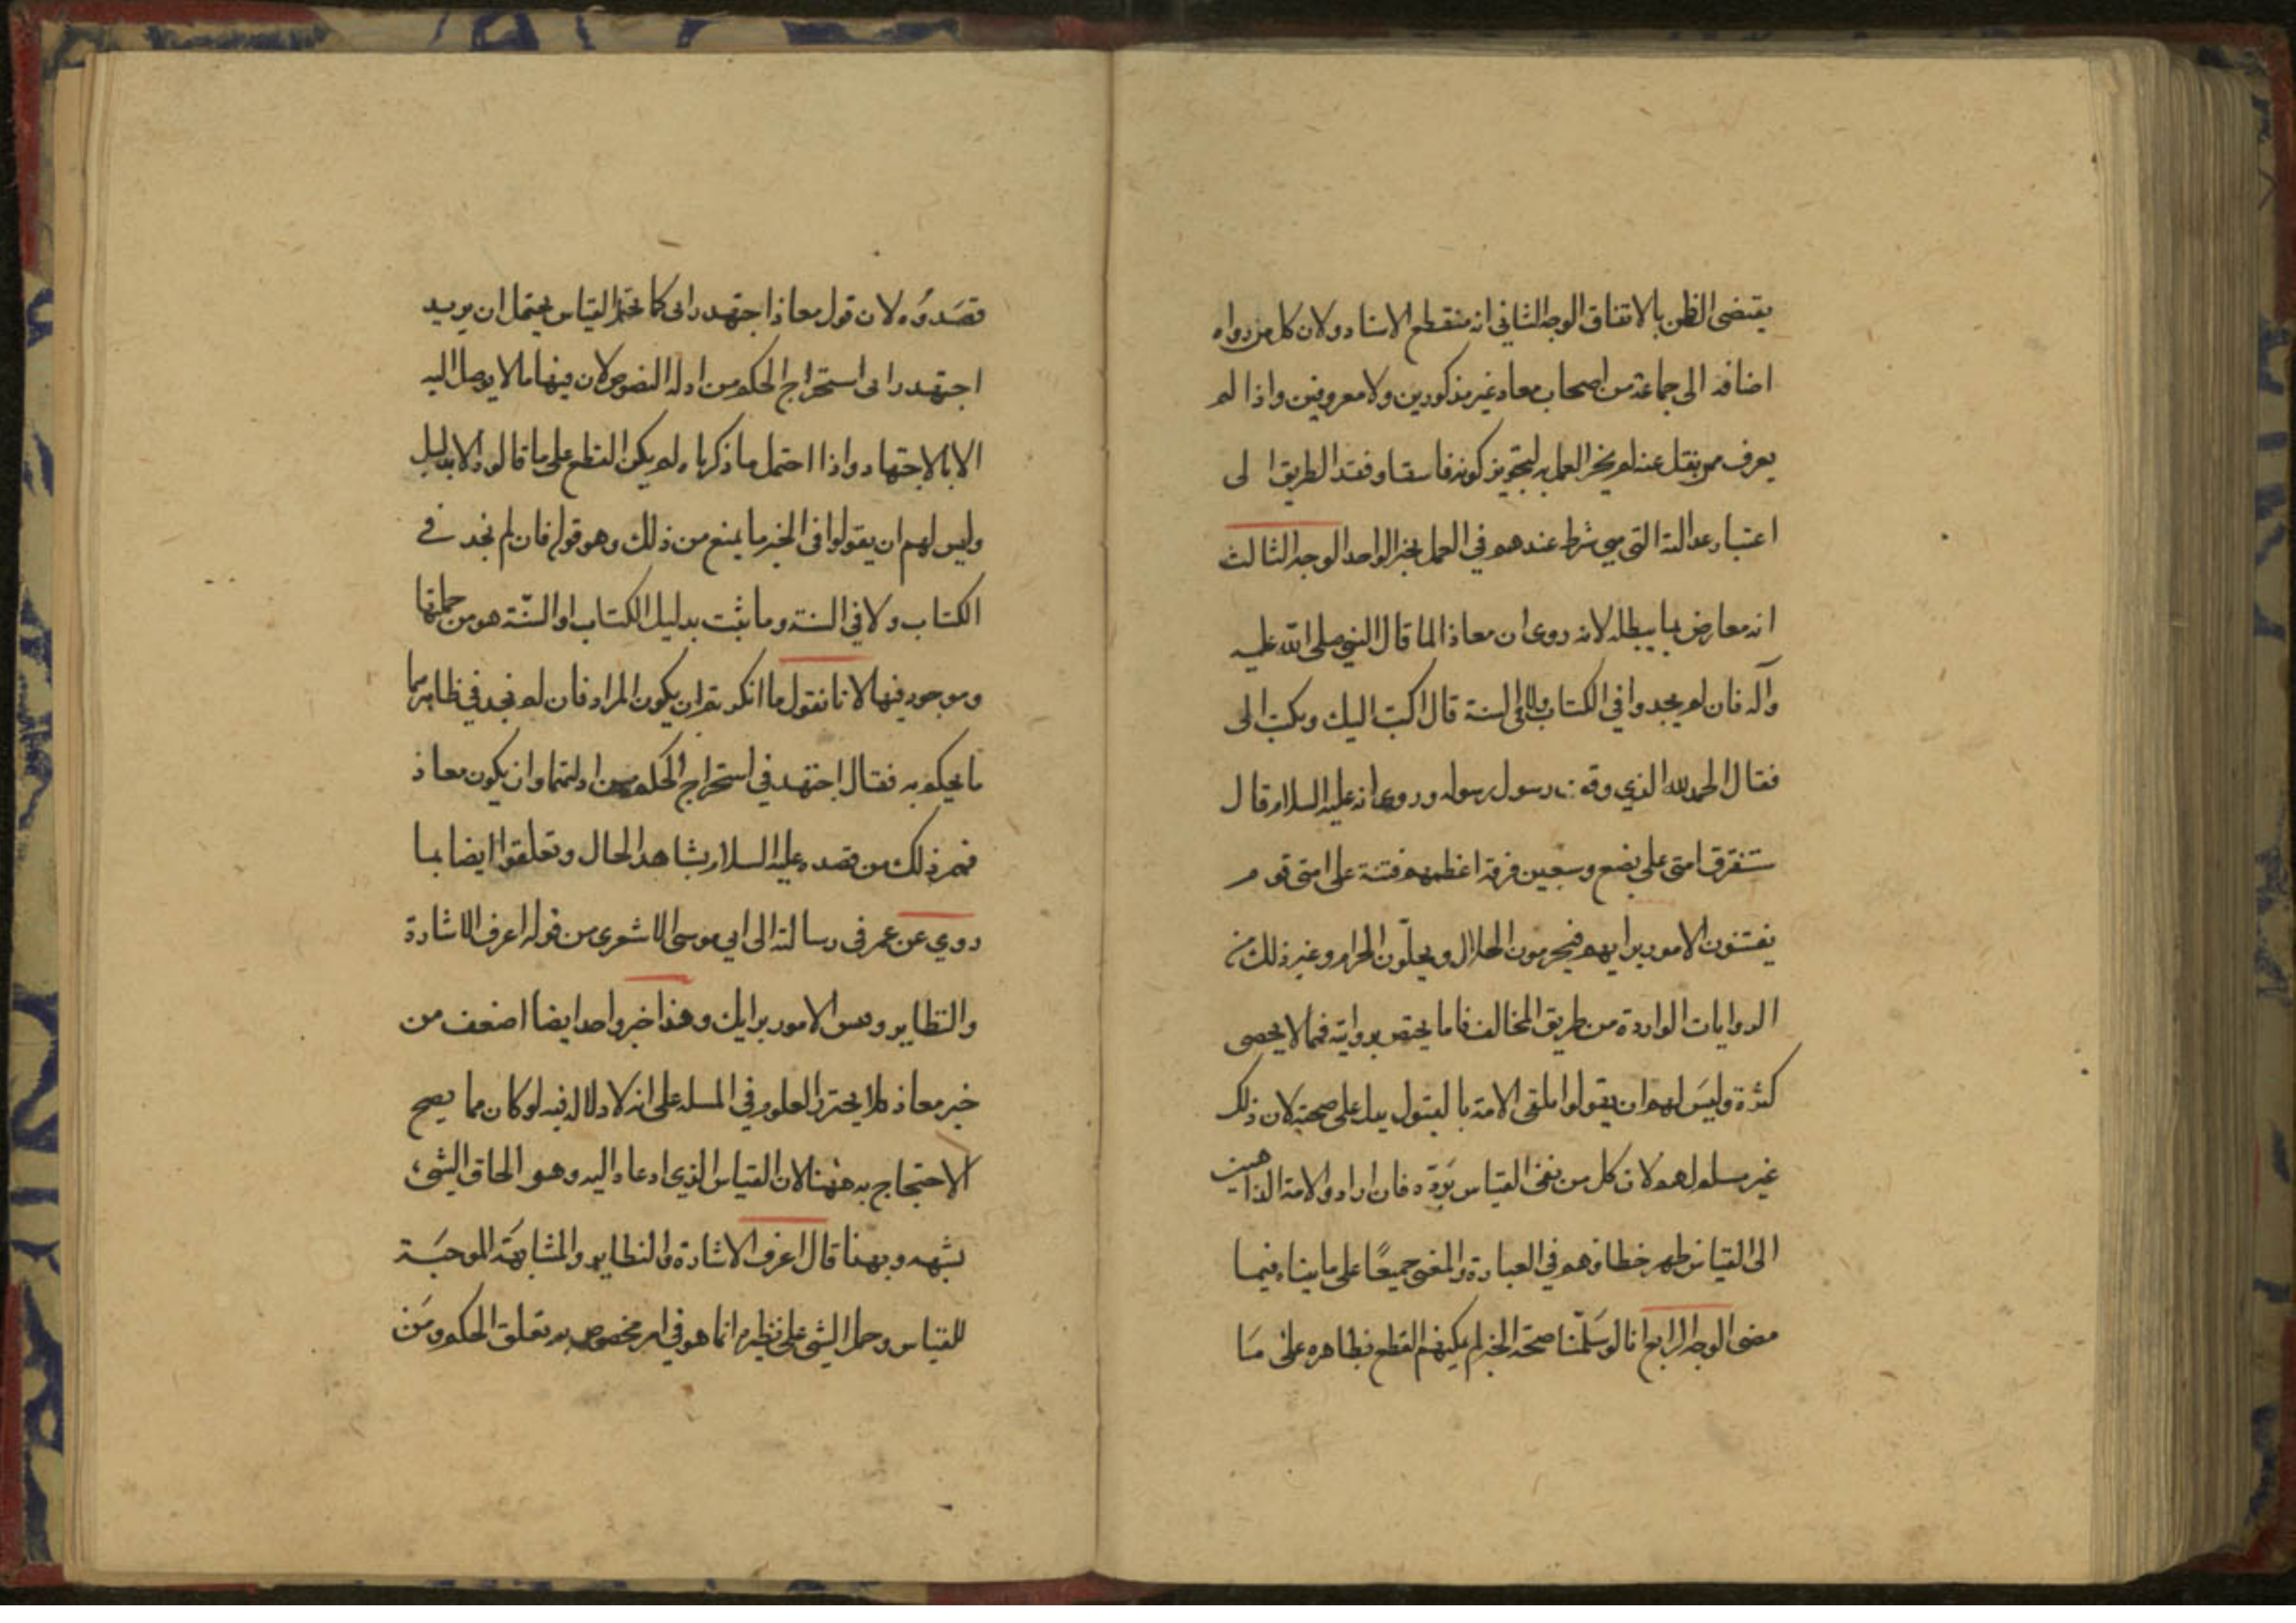 يقتضى الظن بالاتفاق الوجه الثاني انه منقطع الاسناد ولان كل من رواه
اضافه الى جماعة من اصحاب معاد غير مذكورين ولا معروفين واذا لم
يعرف من ينقل عنه لم يجز العمل به لتجويز كونه فاسقا وفقد الطريق الى
اعتبار عدالته التي هي شرط عندهم في العمل بخبر الواحد الوجه الثالث
انه معارض بما يبطله لانه روى ان معاذا لما قال النبي صلى الله عليه
وآله فان لم يجدوا في الكتاب ولا في السنة قال اكتب اليك ويكتب الى
فقال الحمد لله الذي وفق رسول رسوله وروى انه عليه السلام قال
ستفرق امتى على بضع وسبعين فرقة اعظمهم فتنة على امتى قوم
يفتنون الامور برايهم فيحرمون الحلال ويحلّون الحرام وغير ذلك من
الروايات الواردة من طريق المخالف فاما يختص بروايته فما لا يحصى
كثرة وليس لهم ان يقولوا تلقى الامة بالقبول يدل على صحته لان ذلك
غير مسلم لهم لان كل من نفى القياس يردّه فان ارادوا الامة الذاهبين
الى القياس ظهر خطاؤهم في العبارة والمعنى جميعًا على ما بيناه فيما
مضى الوجه الرابع انا لو سَلّمنا صحة الخبر لم يكنهم القطع بظاهره على مَا
قصَدوُه لان قول معاذ اجتهد رائى كما يحتمل القياس يحتمل ان يريد
اجتهد رائى استخراج الحكم من ادلة النصوص لان فيها ما لا يوصل اليه
الا بالاجتهاد واذا احتمل ما ذكرناه لم يكن القطع على ما قالوه الا بدليل
وليس لهم ان يقولوا في الخبر ما يمنع من ذلك وهو قوله فان لم نجد في
الكتاب ولا في السنة وما ثبت بدليل الكتاب او السّنة هو من جملتها
وموجود فيها لانا نقول ما انكرتم ان يكون المراد فان لم نجد في ظاهرهما
ما يحكم به فقال اجتهد في استخراج الحكم من ادلتهما وان يكون معاذ
فهم ذلك من قصده عليه السلام بشاهد الحال وتعلقوا ايضا بما
روي عن عمر في رسالته الى ابي موسى الاشعرى من قوله اعرف الاشارة
والنظاير وقس الامور برايك وهذا خبر واحد ايضا اضعف من
خبر معاذ فلا يحترز العلوم في المسله على انه لا دلاله فيه لو كان مما يصح
الاحتجاج به ههنا لان القياس الذي ادعاه اليه وهو الحاق الشىء
بشبهه وبهنا قال اعرف الاشارة والنظاير والمشابهَة الموجبَة
للقياس وحمل الشى على نظيره انما هو في امر مخصوص به تعلق الحكم ومَن